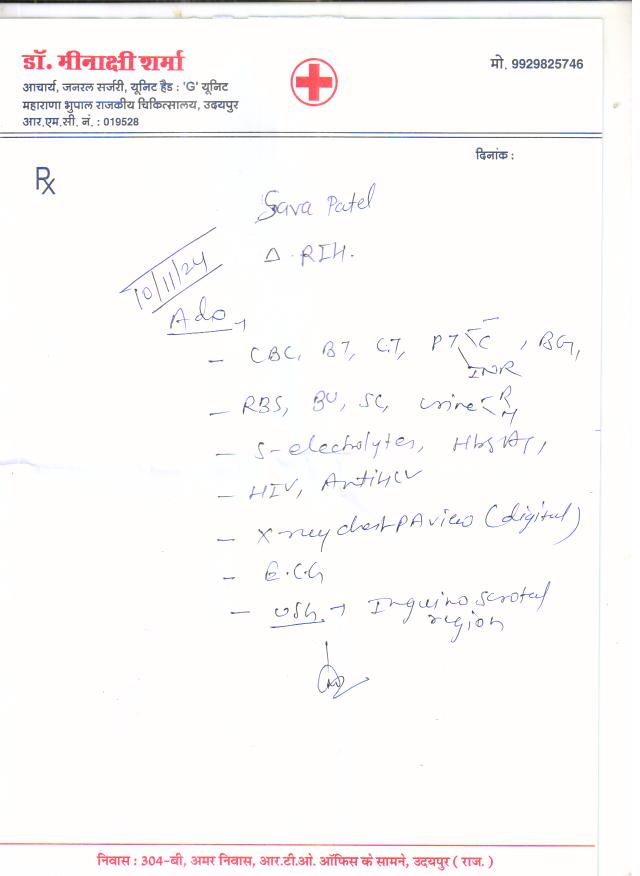 डॉ. मीनाक्षी शर्मा
आचार्य, जनरल सर्जरी, यूनिट हैड : 'G' यूनिट
महाराणा भुपाल राजकीय चिकित्सालय, उदयपुर
आर.एम.सी. नं. : 019528
मो. 9929825746
दिनांक :
Rx
Sava Patel
Δ. RIH.
10/11/24
Ado →
- CBC, BT, CT, PT < C, BG,
INR
- RBS, BU, SC, urine < R
M
- S-electrolytes, HbsAg,
- HIV, AntiHCV
- X-ray chest PA view (digital)
- E.C.G
- USG. → Inguino scrotal
region
निवास : 304-बी, अमर निवास, आर.टी.ओ. ऑफिस के सामने, उदयपुर ( राज. )